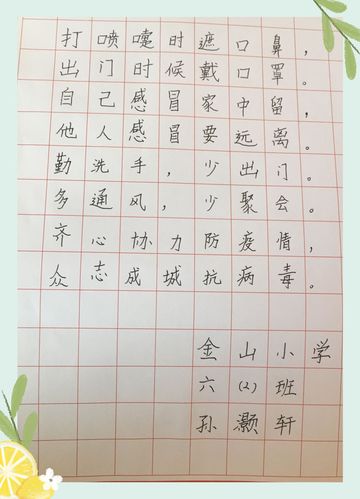 打喷嚏时遮口鼻，
出门时候戴口罩。
自己感冒家中留，
他人感冒要远离。
勤洗手，少出门。
多通风，少聚会。
齐心协力防疫情，
众志成城抗病毒。
金山小学
六（2）班
孙灏轩